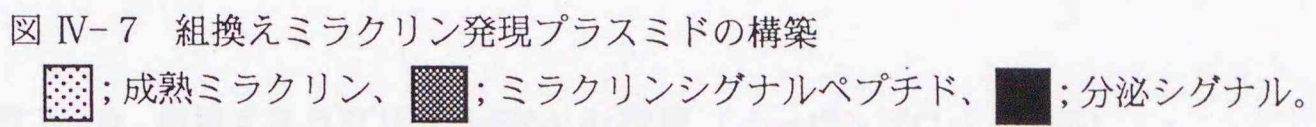 図 Ⅳ-7 組換えミラクリン発現プラスミドの構築
;成熟ミラクリン、;ミラクリンシグナルペプチド、;分泌シグナル。